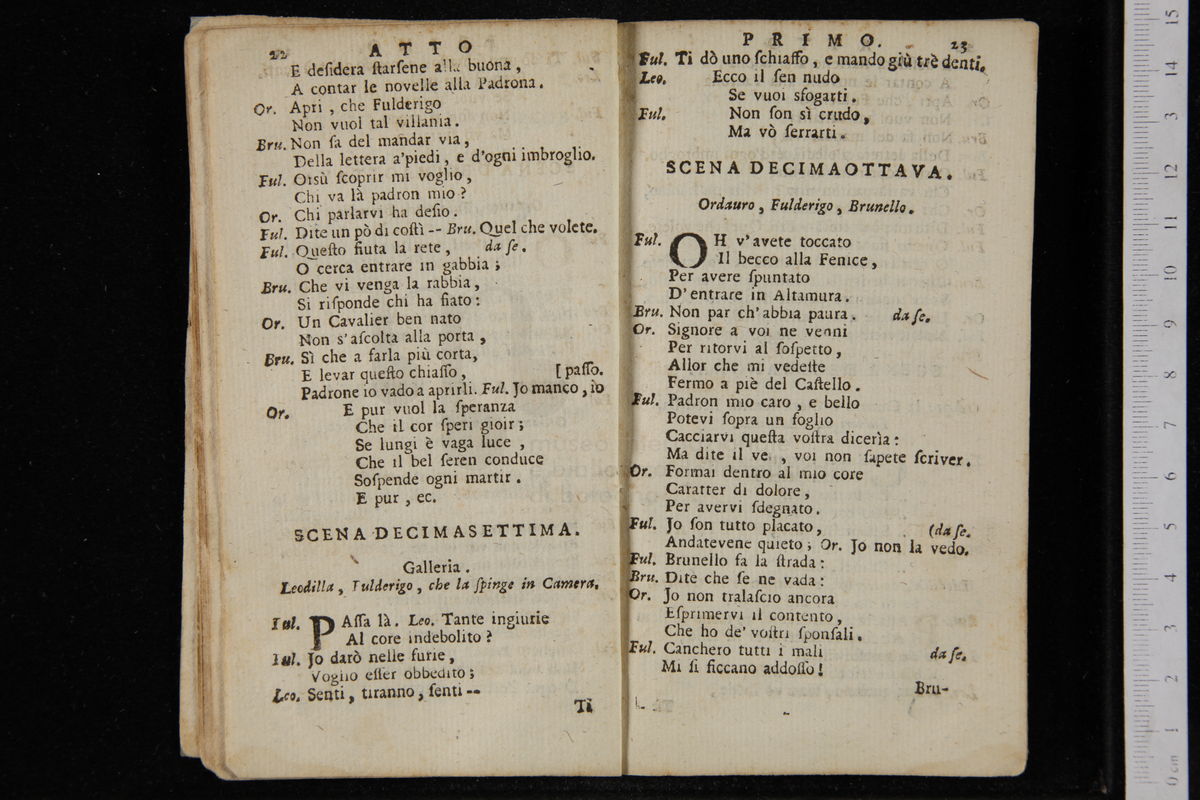 22 ATTO
E desidera starsene alla buona,
A contar le novelle alla Padrona.
Or. Apri, che Fulderigo
Non vuol tal villania.
Bru. Non sa del mandar via,
Della lettera a'piedi, e d'ogni imbroglio.
Ful. Orsù scoprir mi voglio,
Chi va là padron mio?
Or. Chi parlarvi ha desio.
Ful. Dite un pò di costì -- Bru. Quel che volete.
Ful. Questo fiuta la rete, da se.
O cerca entrare in gabbia;
Bru. Che vi venga la rabbia,
Si risponde chi ha fiato:
Or. Un Cavalier ben nato
Non s'ascolta alla porta,
Bru. Sì che a farla più corta,
E levar questo chiasso, [passo.
Padrone io vado a aprirli. Ful. Jo manco, iò
Or. E pur vuol la speranza
Che il cor speri gioir;
Se lungi è vaga luce,
Che il bel seren conduce
Sospende ogni martir.
E pur, ec.
SCENA DECIMASETTIMA.
Galleria.
Leodilla, Fulderigo, che la spinge in Camera.
Ful. PAssa là. Leo. Tante ingiurie
Al core indebolito?
Ful. Jo darò nelle furie,
Voglio esser obbedito;
Leo. Senti, tiranno, senti --
Ti
PRIMO. 23
Ful. Ti dò uno schiaffo, e mando giù trè denti.
Leo. Ecco il sen nudo
Se vuoi sfogarti.
Ful. Non son sì crudo,
Ma vò serrarti.
SCENA DECIMAOTTAVA.
Ordauro, Fulderigo, Brunello.
Ful. OH v'avete toccato
Il becco alla Fenice,
Per avere spuntato
D'entrare in Altamura.
Bru. Non par ch'abbia paura. da se.
Or. Signore a voi ne venni
Per ritorvi al sospetto,
Allor che mi vedeste
Fermo a piè del Castello.
Ful. Padron mio caro, e bello
Potevi sopra un foglio
Cacciarvi questa vostra dicerìa:
Ma dite il ve, voi non sapete scriver.
Or. Formai dentro al mio core
Caratter di dolore,
Per avervi sdegnato.
Ful. Jo son tutto placato, (da se.
Andatevene quieto; Or. Jo non la vedo.
Ful. Brunello fa la strada:
Bru. Dite che se ne vada:
Or. Jo non tralascio ancora
Esprimervi il contento,
Che ho de' vostri sponsali.
Ful. Canchero tutti i mali da se.
Mi si ficcano addosso!
Bru-
15
14
13
12
11
10
9
8
7
6
5
4
3
2
1
0 cm